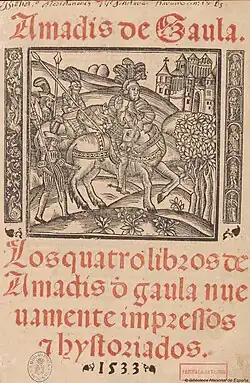 Amadis de Gaula.
Los quatro libros de
Amadis d̶ gaula nue
uamente impressos
⁊ hystoriados.
1533
© Biblioteca Nacional de España